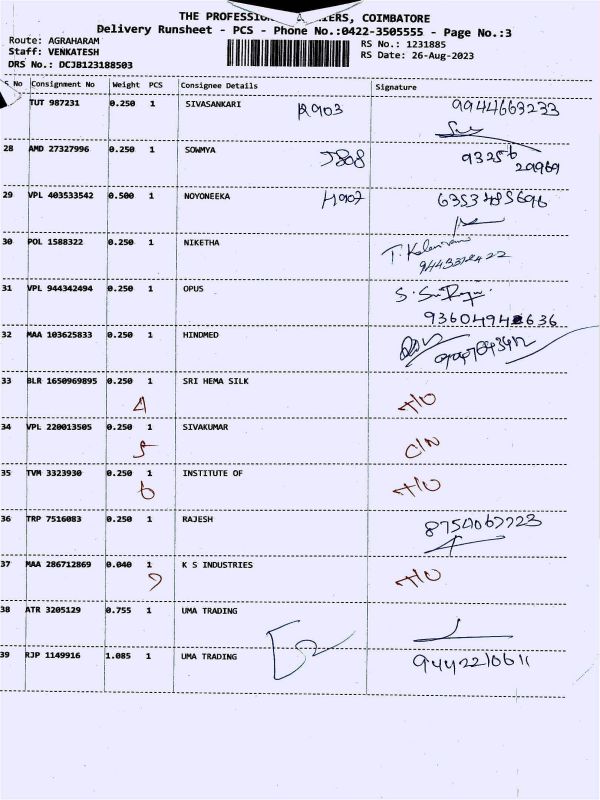 THE PROFESSIONAL COURIERS, COIMBATORE
Delivery Runsheet - PCS - Phone No.:0422-3505555 - Page No.:3
Route: AGRAHARAM
Staff: VENKATESH
DRS No.: DCJB123188503
RS No.: 1231885
RS Date: 26-Aug-2023
S No Consignment No Weight PCS Consignee Details Signature
TUT 987231 0.250 1 SIVASANKARI A903 9944663233
28 AMD 27327996 0.250 1 SOWMYA J808 93256
20969
29 VPL 403533542 0.500 1 NOYONEEKA H907 6353485696
30 POL 1588322 0.250 1 NIKETHA
31 VPL 944342494 0.250 1 OPUS
32 MAA 103625833 0.250 1 HINDMED
33 BLR 1650969895 0.250 1 SRI HEMA SILK
4
34 VPL 220013505 0.250 1 SIVAKUMAR
5
35 TVM 3323930 0.250 1 INSTITUTE OF
6
36 TRP 7516083 0.250 1 RAJESH 8754067723
37 MAA 286712869 0.040 1 K S INDUSTRIES
38 ATR 3205129 0.755 1 UMA TRADING
39 RJP 1149916 1.085 1 UMA TRADING 9442210611